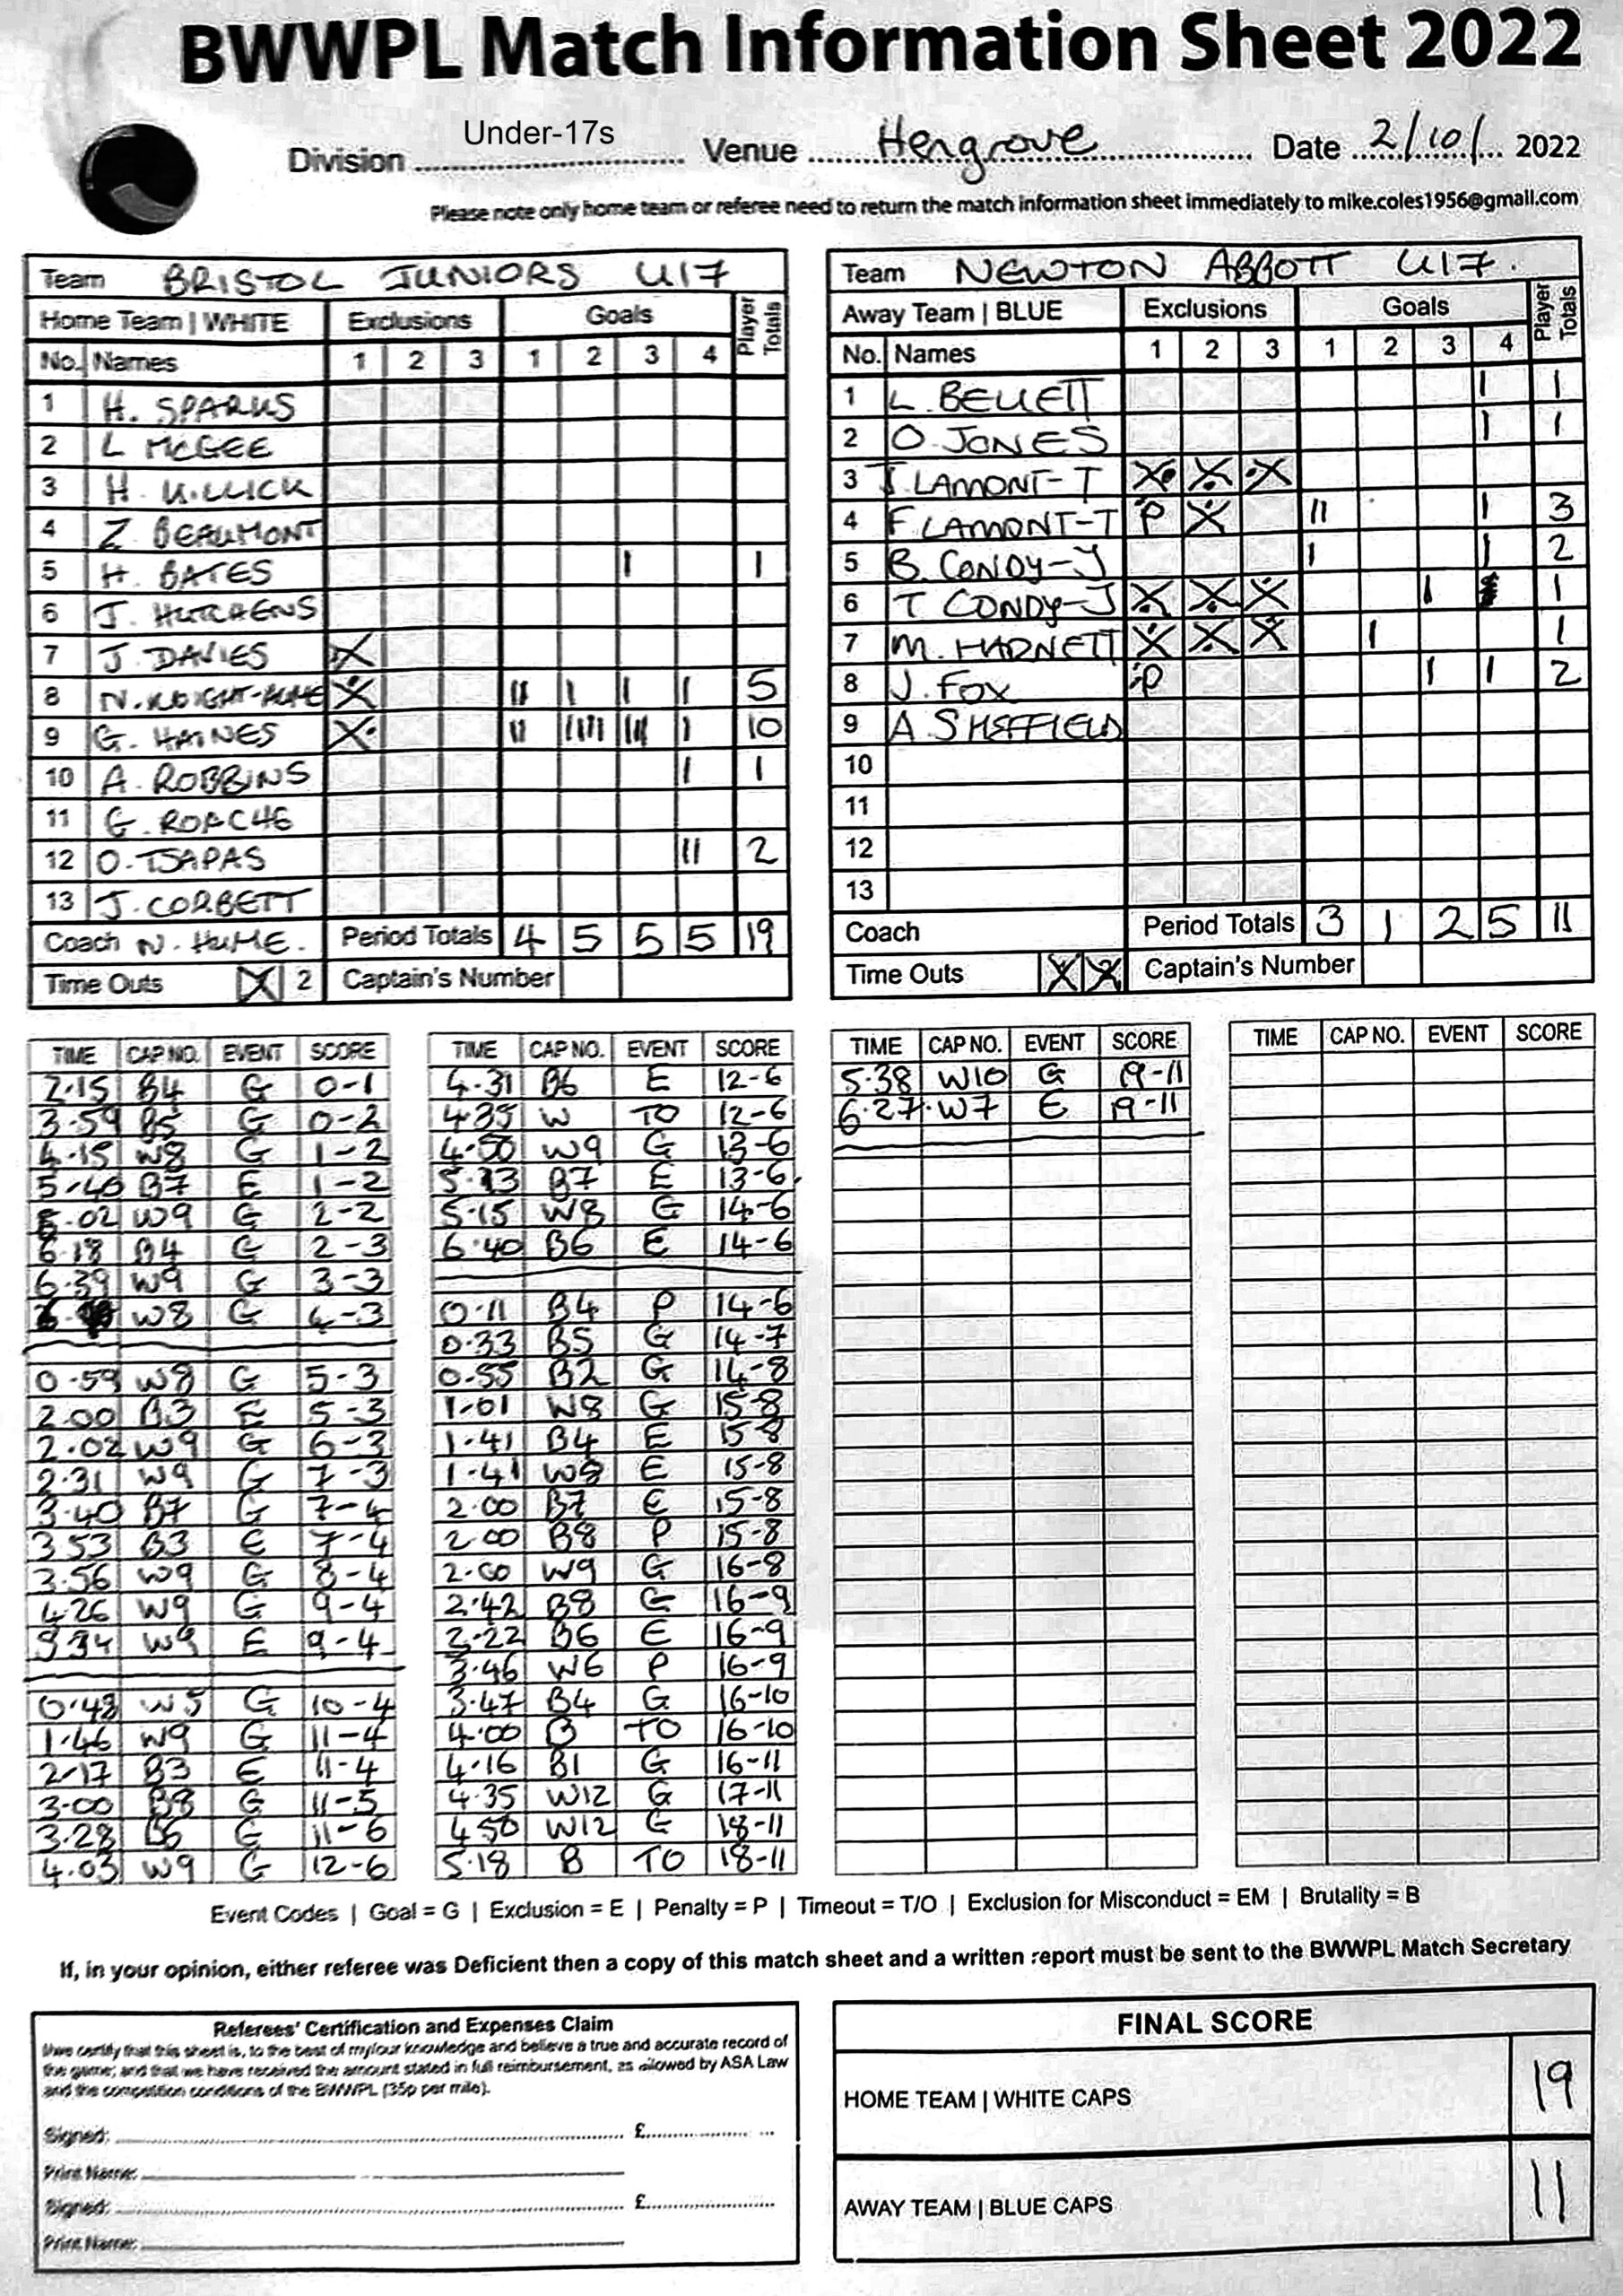 BWWPL Match Information Sheet 2022
Division Under-17s Venue Hengrove Date 2/10/ 2022
Please note only home team or referee need to return the match information sheet immediately to mike.coles1956@gmail.com
Team BRISTOL JUNIORS U17
Home Team | WHITE Exclusions Goals Player Totals
No. Names 1 2 3 1 2 3 4
1 H. SPARKS
2 L MCGEE
3 H. KILLICK
4 Z. BEAUMONT
5 H. BATES | 1
6 J. HUTCHENS
7 J. DAVIES X
8 X || | | | 5
9 G. HAINES X || ||||  |||  | 10
10 A. ROBBINS | 1
11 G. ROACHE
12 O. TSAPAS || 2
13 J. CORBETT
Coach N. HUME. Period Totals 4 5 5 5 19
Time Outs X 2 Captain's Number
Team NEWTON ABBOTT U17.
Away Team | BLUE Exclusions Goals Player Totals
No. Names 1 2 3 1 2 3 4
1 L. BELLETT | 1
2 O. JONES | 1
3 J. LAMONT-T X X X
4 F LAMONT-T P X || | 3
5 B. CONDY-J | | 2
6 T CONDY-J X X X | 1
7 M. HARNETT X X X | 1
8 J. FOX P | | 2
9 A. SHEFFIELD
10
11
12
13
Coach Period Totals 3 1 2 5 11
Time Outs X X Captain's Number
TIME CAP NO. EVENT SCORE
2.15 B4 G 0-1
3.59 B5 G 0-2
4.15 W8 G 1-2
5.40 B7 E 1-2
6.02 W9 G 2-2
6.18 B4 G 2-3
6.39 W9 G 3-3
W8 G 4-3
0.59 W8 G 5-3
2.00 B3 E 5-3
2.02 W9 G 6-3
2.31 W9 G 7-3
3.40 B7 G 7-4
3.53 B3 E 7-4
3.56 W9 G 8-4
4.26 W9 G 9-4
W9 E 9-4
0.48 W5 G 10-4
1.46 W9 G 11-4
2.17 B3 E 11-4
3.00 B8 G 11-5
3.28 B6 G 11-6
4.03 W9 G 12-6
TIME CAP NO. EVENT SCORE
4.31 B6 E 12-6
4.35 W TO 12-6
4.50 W9 G 13-6
5.13 B7 E 13-6
5.15 W8 G 14-6
6.40 B6 E 14-6
0.11 B4 P 14-6
0.33 B5 G 14-7
0.55 B2 G 14-8
1.01 W8 G 15-8
1.41 B4 E 15-8
1.41 W8 E 15-8
2.00 B7 E 15-8
2.00 B8 P 15-8
2.00 W9 G 16-8
2.42 B8 G 16-9
2.22 B6 E 16-9
3.46 W6 P 16-9
3.47 B4 G 16-10
4.00 B TO 16-10
4.16 B1 G 16-11
4.35 W12 G 17-11
4.50 W12 G 18-11
5.18 B TO 18-11
TIME CAP NO. EVENT SCORE
5.38 W10 G 19-11
6.27 W7 E 19-11
TIME CAP NO. EVENT SCORE
Event Codes | Goal = G | Exclusion = E | Penalty = P | Timeout = T/O | Exclusion for Misconduct = EM | Brutality = B
If, in your opinion, either referee was Deficient then a copy of this match sheet and a written report must be sent to the BWWPL Match Secretary
Referees' Certification and Expenses Claim
I/we certify that this sheet is, to the best of my/our knowledge and believe a true and accurate record of
the game; and that we have received the amount stated in full reimbursement, as allowed by ASA Law
and the competition conditions of the BWWPL (35p per mile).
Signed: £
Print Name:
Signed: £
Print Name:
FINAL SCORE
HOME TEAM | WHITE CAPS 19
AWAY TEAM | BLUE CAPS 11